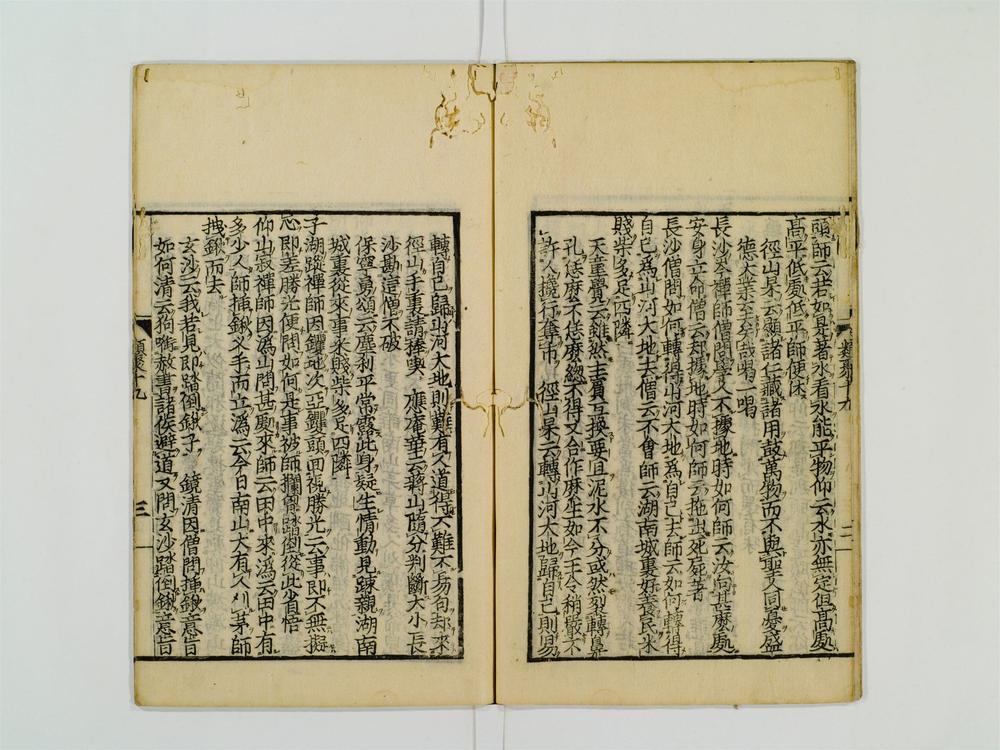 頭師云若如是著水看水能平物仰云水亦無定但高處
高平低處低平師便休
徑山杲云顯諸仁藏諸用鼓萬物而不與聖人同憂盛
德大業至矣哉喝一喝
長沙岑禪師僧問學人不據地時如何師云汝向甚麼處
安身立命僧云却據地時如何師云拖出死屍著
長沙僧問如何轉得山河大地為自己去師云如何轉得
自己為山河大地去僧云不會師云湖南城裏好養民米
賤柴多足四隣
天童覺云雖然主賓互換要且泥水不分或然裂轉鼻
孔恁麼不恁麼總不得又合作麼生如今王令稍嚴不
許人攙行奪市 徑山杲云轉山河大地歸自己則易
類聚十九
二
轉自己歸山河大地則難有人道得不難不易句却來
徑山手裏請棒喫 應庵華云蔣山隨分判斷大小長
沙勘這僧不破
保寧勇頌云塵剎平常露此身疑生情動見踈親湖南
城裏從來事米賤柴多足四隣
子湖蹤禪師因钁地次亞钁頭回視勝光云事即不無擬
心即差勝光便問如何是事被師攔胸踏倒從此省悟
仰山寂禪師因溈山問甚處來師云田中來溈云田中有
多少人師插鍬叉手而立溈云今日南山大有人刈茅師
拽鍬而去
玄沙云我若見即踏倒鍬子 鏡清因僧問插鍬意旨
如何清云狗啣赦書諸侯避道又問玄沙踏倒鍬意旨
類聚十九
三